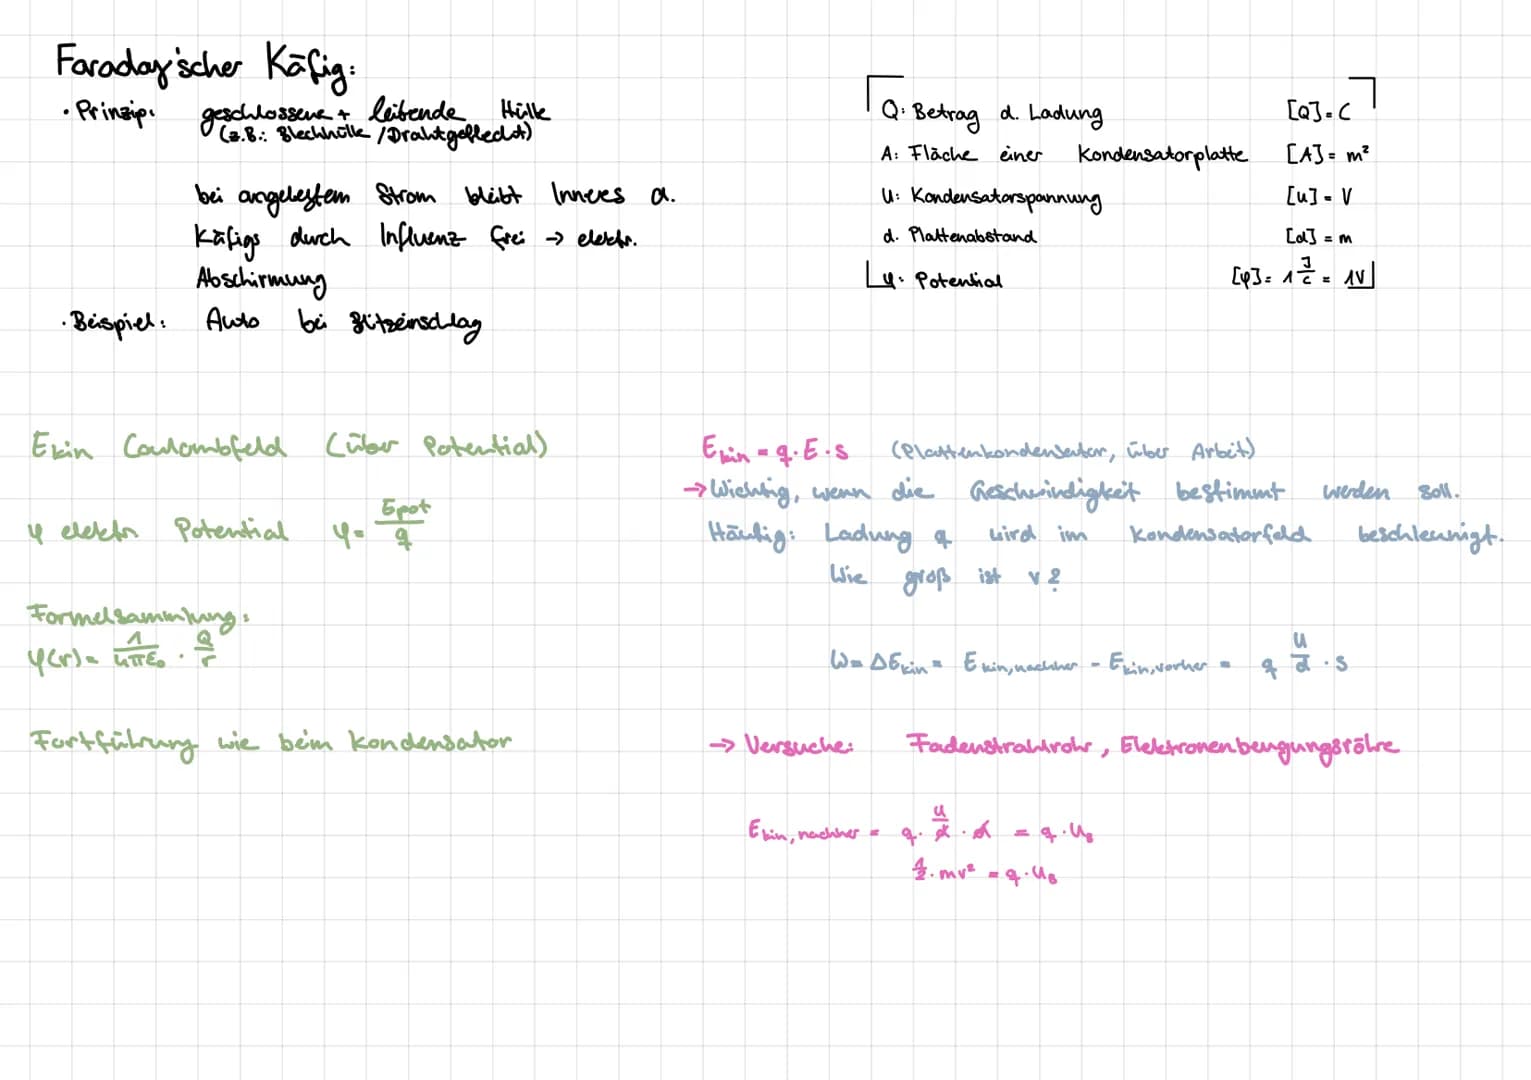 Faraday'scher Käfig:
· Prinzip: geschlossene + leitende Hülle
(z.B.: Blechhülle / Drahtgeflecht)
bei angelegtem Strom bleibt Inneres d.
Käfigs durch Influenz frei → elektr.
Abschirmung
· Beispiel: Auto bei Blitzeinschlag
Q: Betrag d. Ladung [Q] = C
A: Fläche einer Kondensatorplatte [A] = m²
U: Kondensatorspannung [U] = V
d: Plattenabstand [d] = m
φ: Potential [φ] = 1 J/C = 1V
Ekin Coulombfeld (über Potential)
φ elektr Potential φ = Epot/q
Formelsammlung:
φ(r) = 1/4πε₀ · Q/r
Fortführung wie beim Kondensator
Ekin = q · E · s (Plattenkondensator, über Arbeit)
→ Wichtig, wenn die Geschwindigkeit bestimmt werden soll.
Häufig: Ladung q wird im Kondensatorfeld beschleunigt.
Wie groß ist v?
W = ΔEkin = Ekin,nachher - Ekin,vorher = q U/d · s
→ Versuche: Fadenstrahlrohr, Elektronenbeugungsröhre
Ekin,nachher = q · U/d · d = q · UB
1/2 · mv² = q · UB